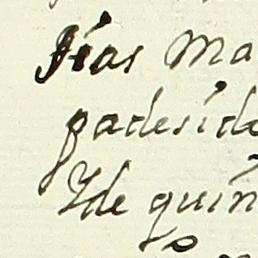 días Ma
padesido
Yde quin